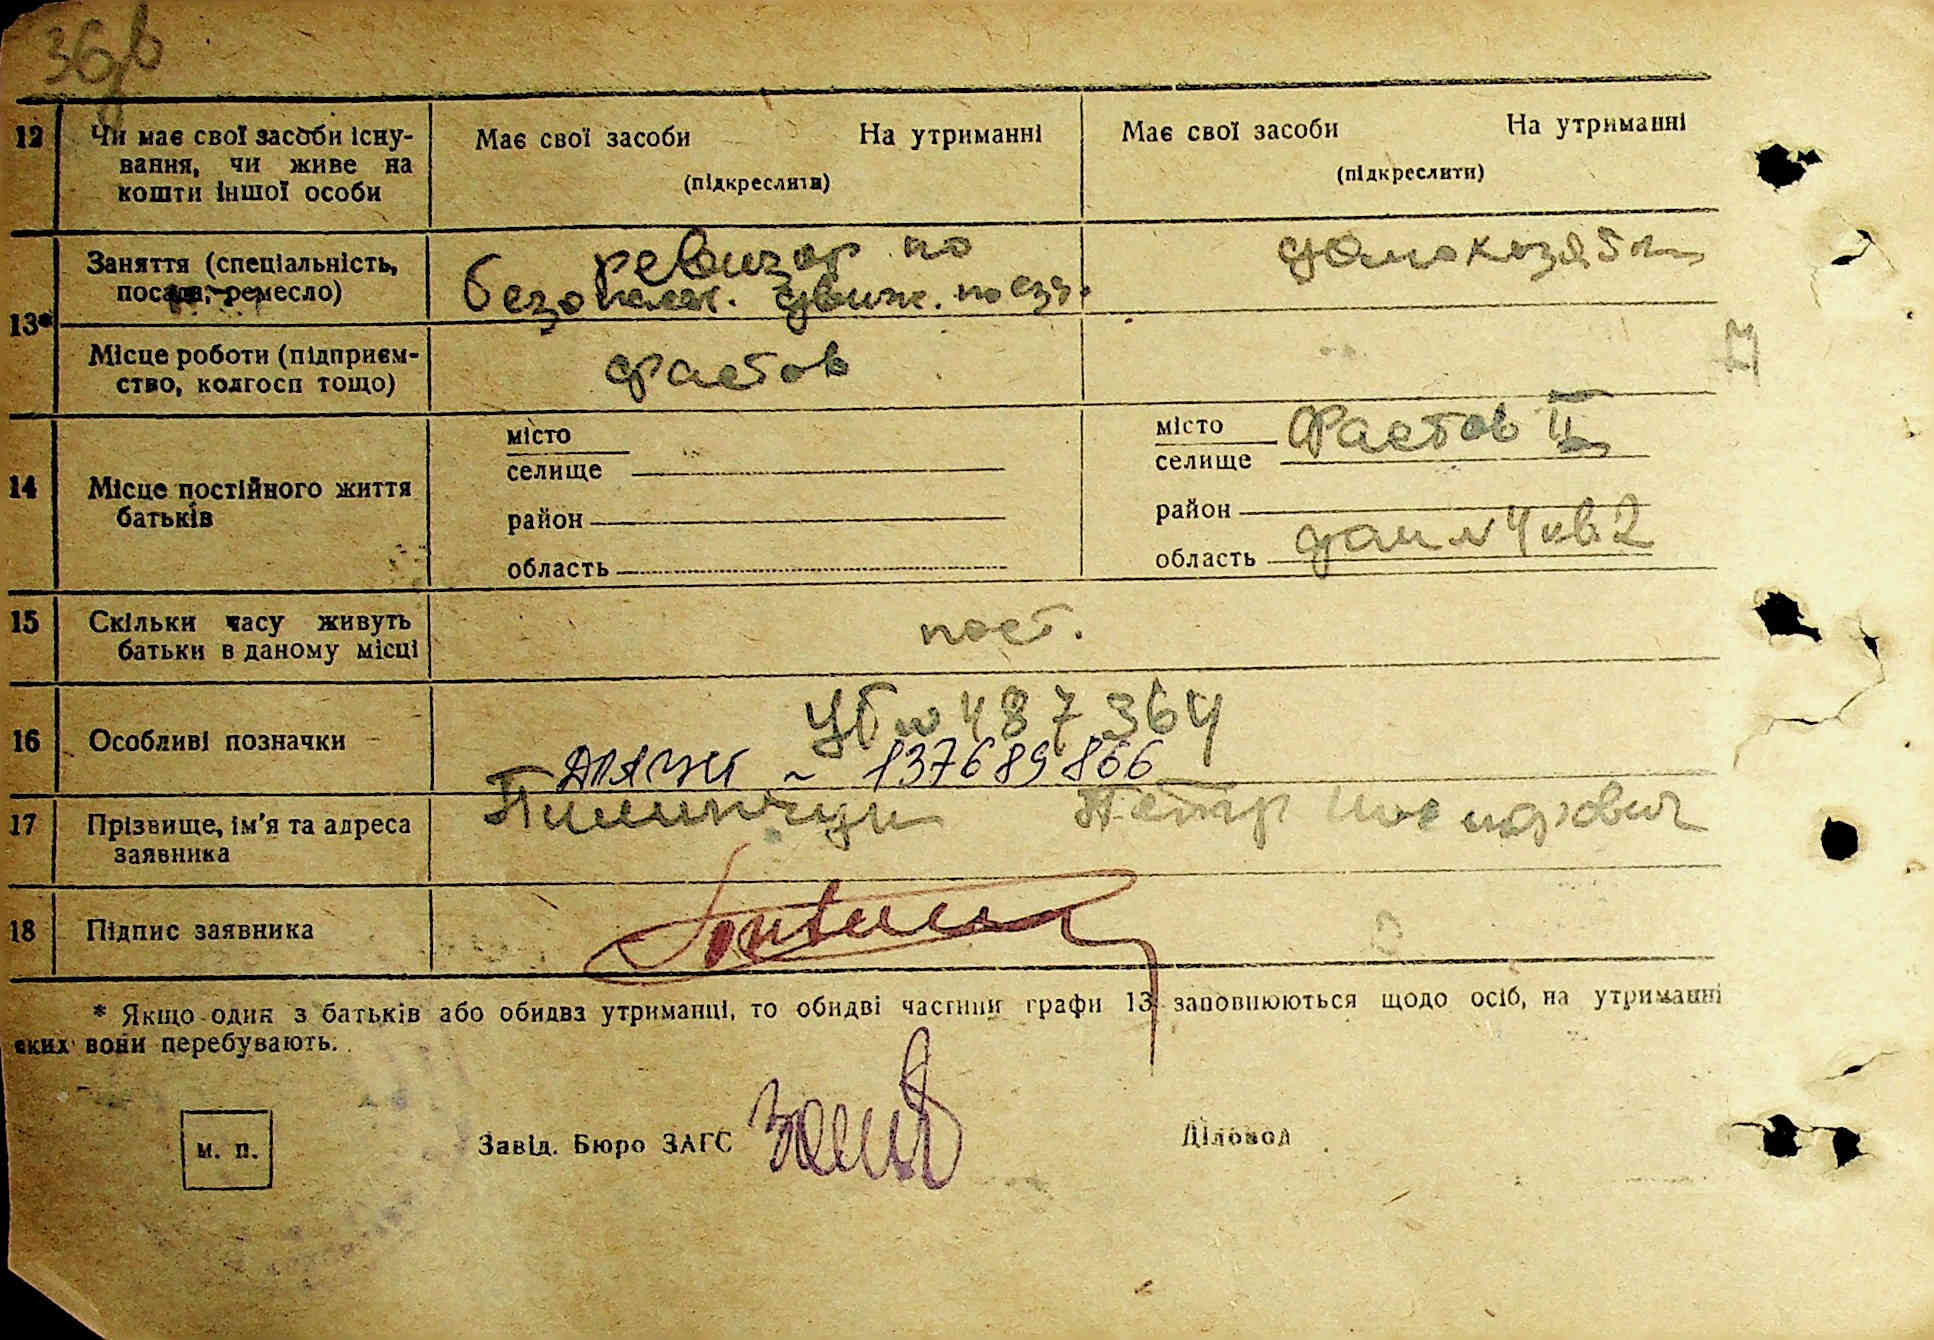 12 Чи має свої засоби існу-
вання, чи живе на
кошти іншої особи
Має свої засоби На утриманні
(підкреслити)
Має свої засоби На утриманні
(підкреслити)
13*
Заняття (спеціальність,
посада, ремесло)
ревизор по
безопасн. движ. поезд.
Місце роботи (підприєм-
ство, колгосп тощо)
Фастов
14 Місце постійного життя
батьків
місто
селище
район
область
місто Фастов II
селище
район
область дом № 4 кв 2
15 Скільки часу живуть
батьки в даному місці
пост.
16 Особливі позначки
№ 487364
137689866
17 Прізвище, ім'я та адреса
заявника
Петр
18 Підпис заявника
* Якщо один з батьків або обидва утриманці, то обидві частини графи 13 заповнюються щодо осіб, на утриманні
яких вони перебувають.
м. п.
Завід. Бюро ЗАГС
Діловод